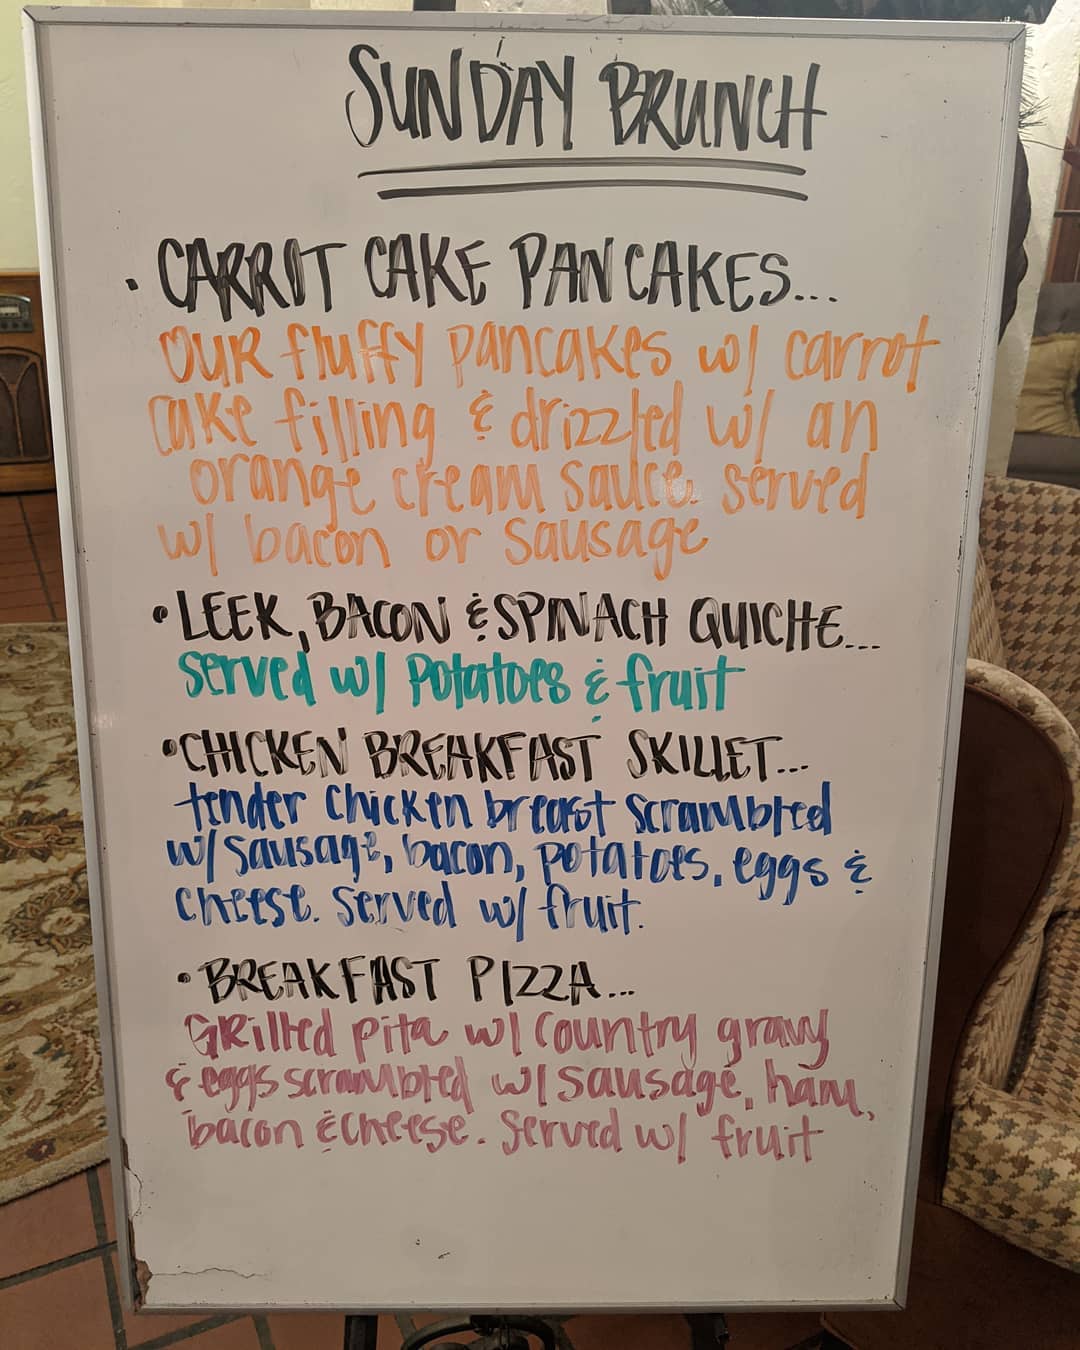 SUNDAY BRUNCH
• CARROT CAKE PANCAKES...
OUR fluffy pancakes w/ carrot
cake filling & drizzled w/ an
orange cream sauce. served
w/ bacon or sausage
• LEEK, BACON & SPINACH QUICHE...
served w/ potatoes & fruit
• CHICKEN BREAKFAST SKILLET...
tender chicken breast scrambled
w/ sausage, bacon, potatoes, eggs &
cheese. Served w/ fruit.
• BREAKFAST PIZZA...
GRilled pita w/ country gravy
& eggs scrambled w/ sausage, ham,
bacon & cheese. Served w/ fruit